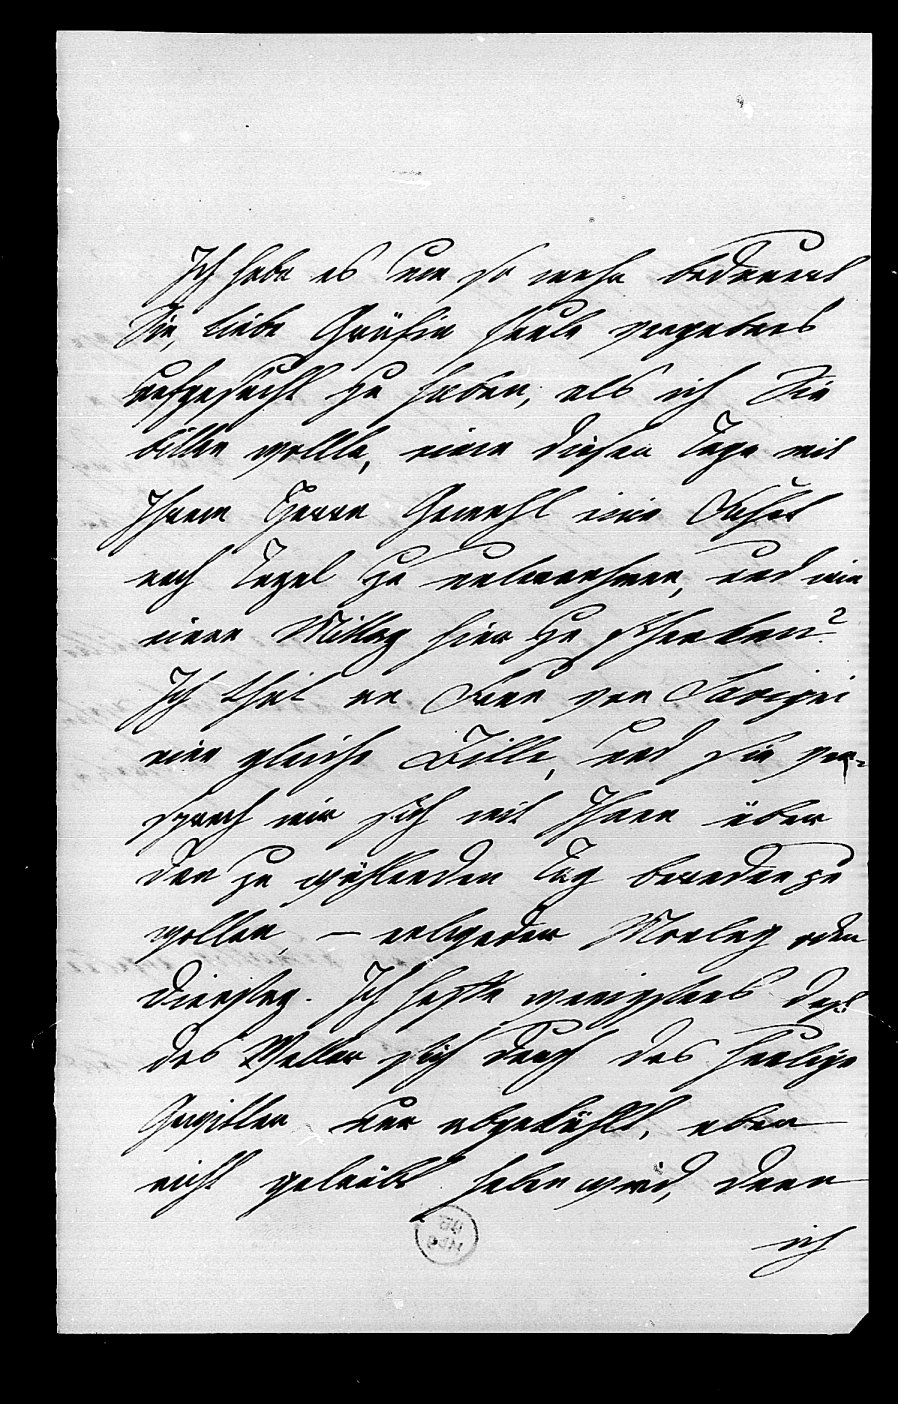 Ich habe es um so mehr bedauert
Sie, liebe Gräfin heute vergebens
aufgesucht zu haben, als ich Sie
bitten wollte, einen dieser Tage mit
Ihrem Herrn Gemahl eine Fahrt
nach Tegel zu unternehmen, und mir
einen Mittag hier zu schenken?
Ich that an Frau von Savigni
eine gleiche Bitte, und sie ver-
sprach mir sich mit Ihnen über
den zu wählenden Tag bereden zu
wollen, – entweder Montag oder
Dienstag. Ich hoffe wenigstens daß
das Wetter sich durch das heutige
Gewitter nur abgekühlt, aber
nicht getrübt haben wird, denn
ich